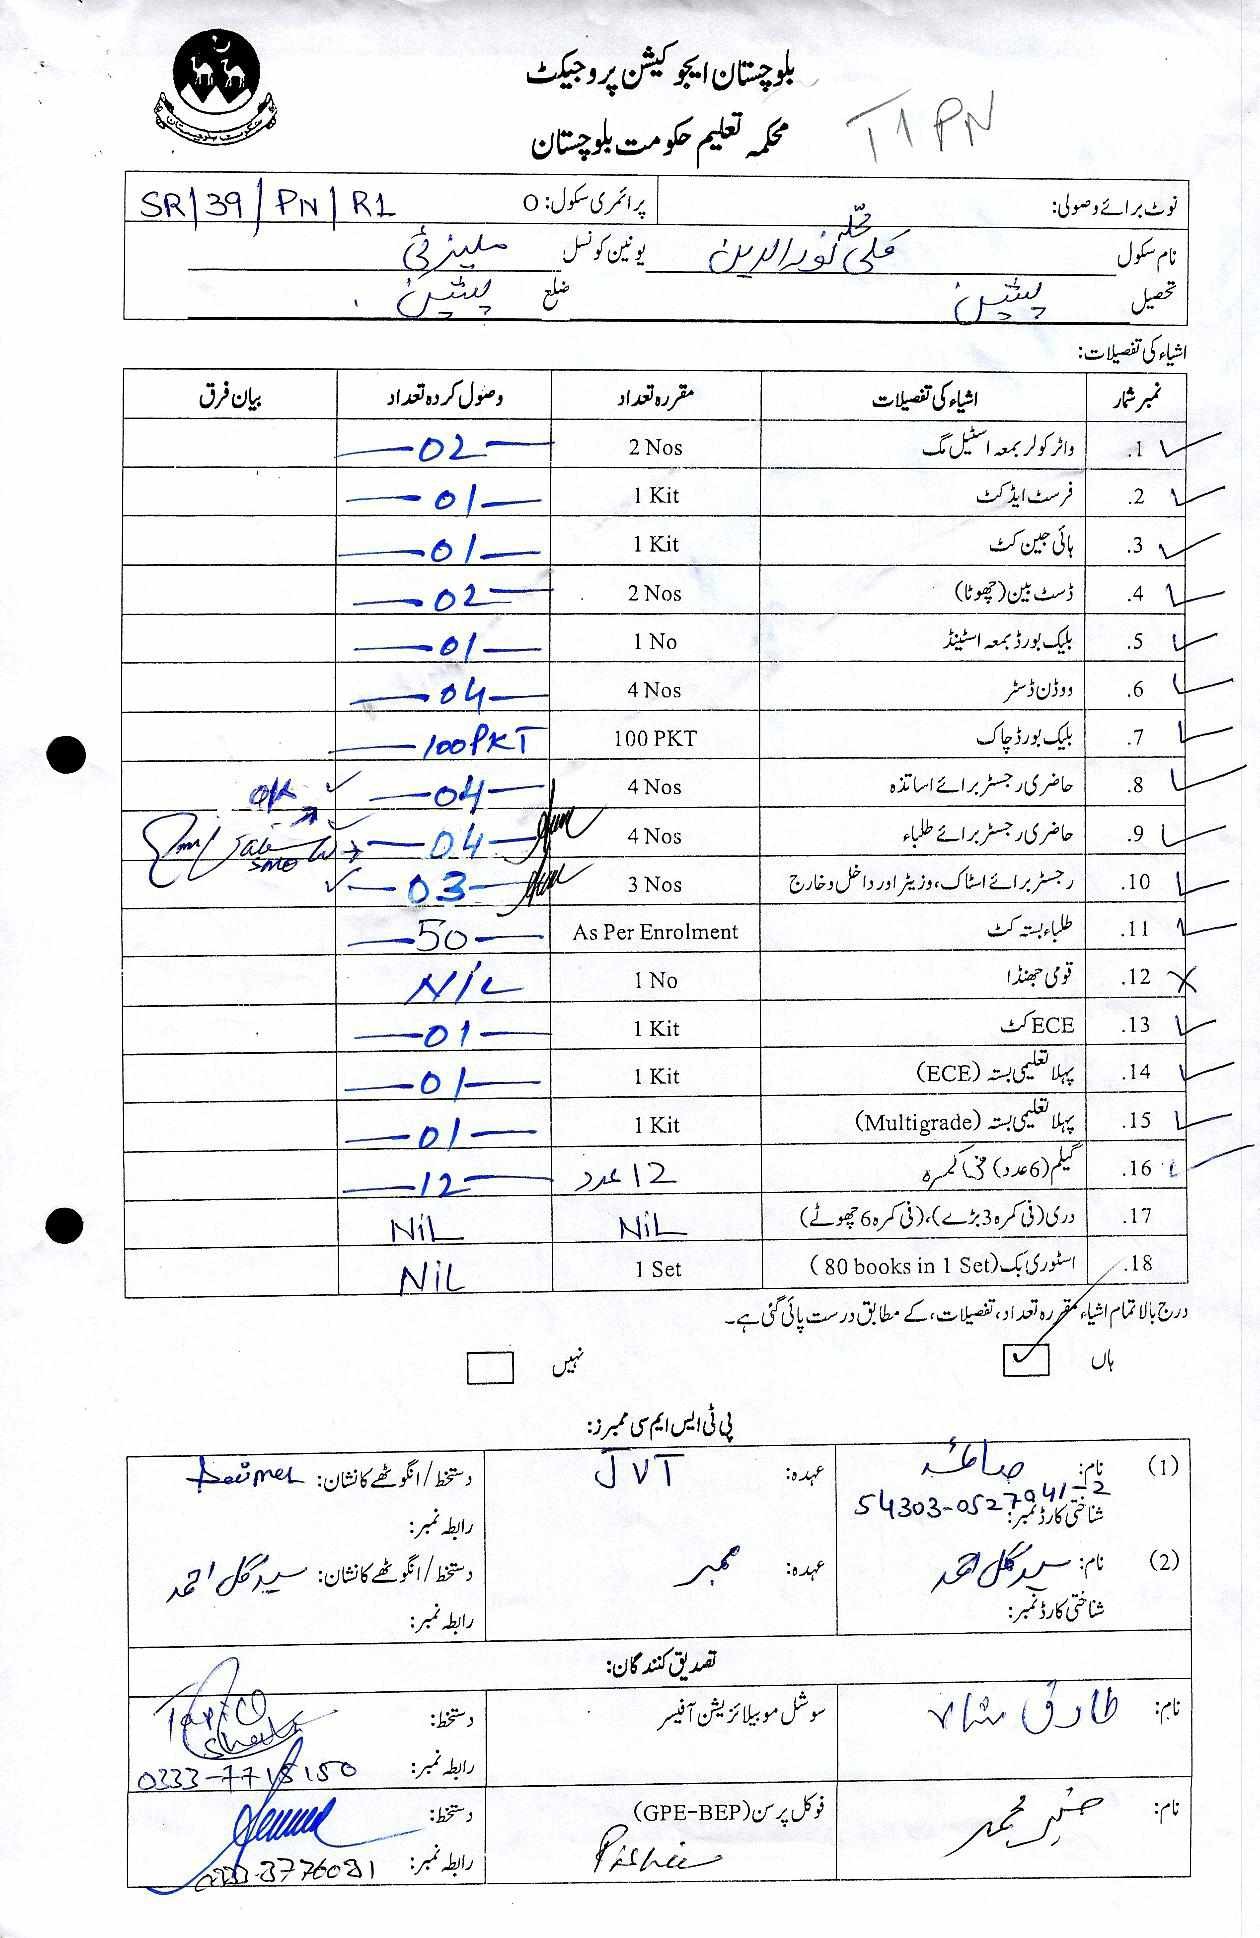 بلوچستان ایجوکیشن پروجیکٹ
محکمہ تعلیم حکومت بلوچستان
T1PN
نوٹ برائے وصولی: پرائمری سکول: O SR/39/PN/R1
نام سکول کلی نورالدین محلہ یونین کونسل ملیزئی
تحصیل پشین ضلع پشین
اشیاء کی تفصیلات:
نمبر شمار اشیاء کی تفصیلات مقررہ تعداد وصول کردہ تعداد بیان فرق
1. واٹر کولر بمعہ اسٹیل مگ 2 Nos 02
2. فرسٹ ایڈ کٹ 1 Kit 01
3. ہائی جین کٹ 1 Kit 01
4. ڈسٹ بین (چھوٹا) 2 Nos 02
5. بلیک بورڈ بمعہ اسٹینڈ 1 No 01
6. ووڈن ڈسٹر 4 Nos 04
7. بلیک بورڈ چاک 100 PKT 100PKT
8. حاضری رجسٹر برائے اساتذہ 4 Nos 04 OK
9. حاضری رجسٹر برائے طلباء 4 Nos 04 SMO
10. رجسٹر برائے اسٹاک، وزیٹر اور داخل و خارج 3 Nos 03
11. طلباء بستہ کٹ As Per Enrolment 50
12. قومی جھنڈا 1 No NiL
13. ECE کٹ 1 Kit 01
14. پہلا تعلیمی بستہ (ECE) 1 Kit 01
15. پہلا تعلیمی بستہ (Multigrade) 1 Kit 01
16. گیلم (6 عدد) فی کمرہ 12 عدد 12
17. دری (فی کمرہ 3 بڑے)، (فی کمرہ 6 چھوٹے) NiL NiL
18. اسٹوری بک (80 books in 1 Set) 1 Set NiL
درج بالا تمام اشیاء مقررہ تعداد، تفصیلات، کے مطابق درست پائی گئی ہے۔
ہاں ✓ نہیں
پی ٹی ایس ایم سی ممبرز:
(1) نام: صائمہ عہدہ: JVT دستخط / انگوٹھے کا نشان: Saima
شناختی کارڈ نمبر: 54303-0527941-2 رابطہ نمبر:
(2) نام: سید گل احمد عہدہ: ممبر دستخط / انگوٹھے کا نشان: سید گل احمد
شناختی کارڈ نمبر: رابطہ نمبر:
تصدیق کنندگان:
نام: طارق شاہ سوشل موبیلائزیشن آفیسر دستخط: Tariq Shah
رابطہ نمبر: 0333-7718150
نام: محمد فوکل پرسن (GPE-BEP) دستخط:
Pishin رابطہ نمبر: 0333-3776081